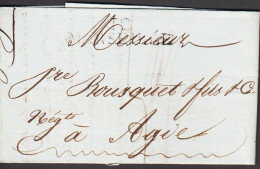 Messieurs
pre Bousquet & fils & C.
Négts
à Agde